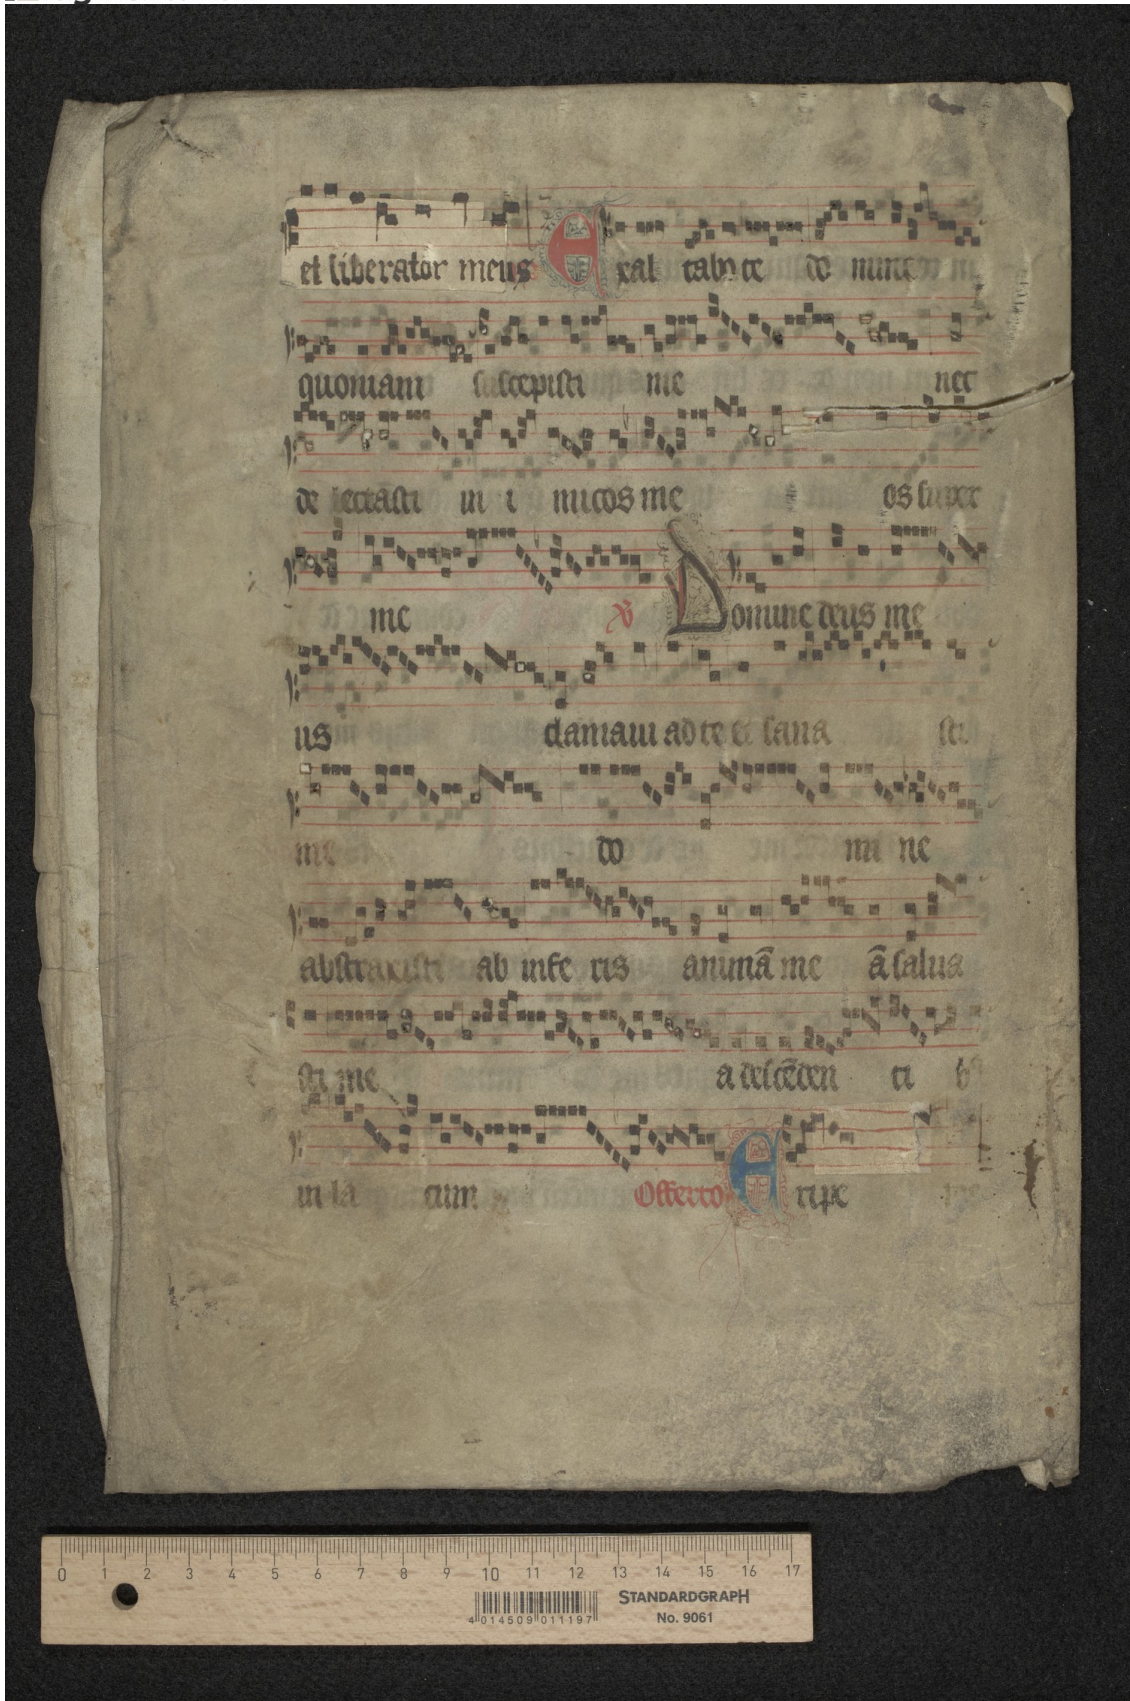 et liberator meus Exal tabo te do mine
quoniam suscepisti me nec
de lectasti in i micos me os super
me V Domine deus me
us clamaui ad te et sana sti
me do mi ne
abstraxisti ab infe ris animā me ā salua
sti me a descēden ti bꝰ
in la cum Offerto Eripe me
0 1 2 3 4 5 6 7 8 9 10 11 12 13 14 15 16 17
STANDARDGRAPH
No. 9061
4 014509 011197